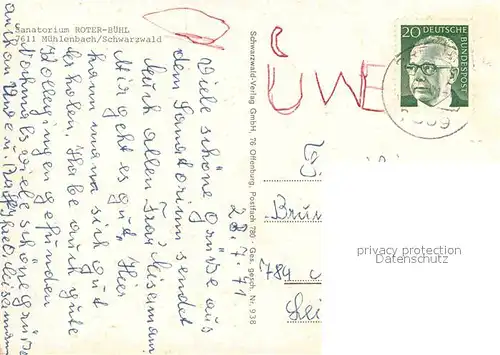 Sanatorium ROTER-BÜHL
7611 Mühlenbach/Schwarzwald
28.7.71
Viele schöne Grüße aus
dem Sanatorium sendet
Euch allen Frau
Mir geht es gut, Hier
kann man sich gut
erholen. Habe auch gute
Kolleginnen gefunden
Nochmals viele schöne Grüße
auch an Uwe u.
Schwarzwald-Verlag GmbH, 76 Offenburg, Postfach 780 - Ges. gesch. Nr. 938
ÜWE
20 DEUTSCHE
BUNDESPOST
789
privacy protection
Datenschutz